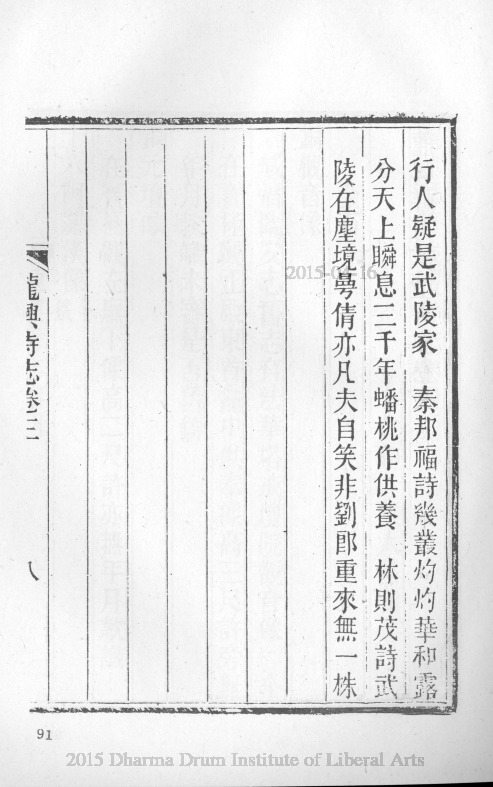 行人疑是武陵家　秦邦福詩幾叢灼灼華和露
分天上瞬息三千年蟠桃作供養　林則茂詩武
陵在塵境萼倩亦凡夫自笑非劉郎重來無一株
龍興寺志卷三
八
91
2015-04-16
2015 Dharma Drum Institute of Liberal Arts